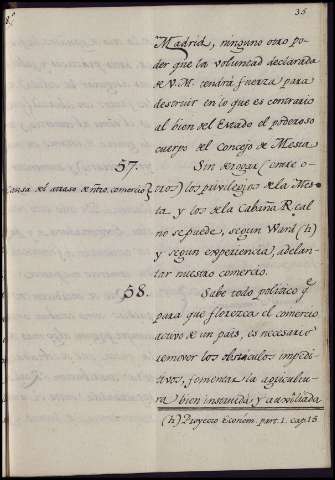 35
8.º
Madrid, ninguno otro po-
der que la voluntad declarada
de V.M. tendrá fuerza para
destruir en lo que es contrario
al bien del Estado el poderoso
cuerpo del Concejo de Mesta
57.
Causa del atraso de ntro. comercio}
Sin derogar (entre o-
tros) los privilegios de la Mes-
ta y los de la Cabaña Real
no se puede, segun Ward (h)
y segun experiencia, adelan-
tar nuestro comercio.
58.
Sabe todo politico q.e
para que florezca el comercio
activo de un pais, es necesario
remover los obstáculos impedi-
tivos, fomentar la agricultu-
ra bien instruida y auxiliada
(h) Proyecto Económ. part. 1. cap. 15